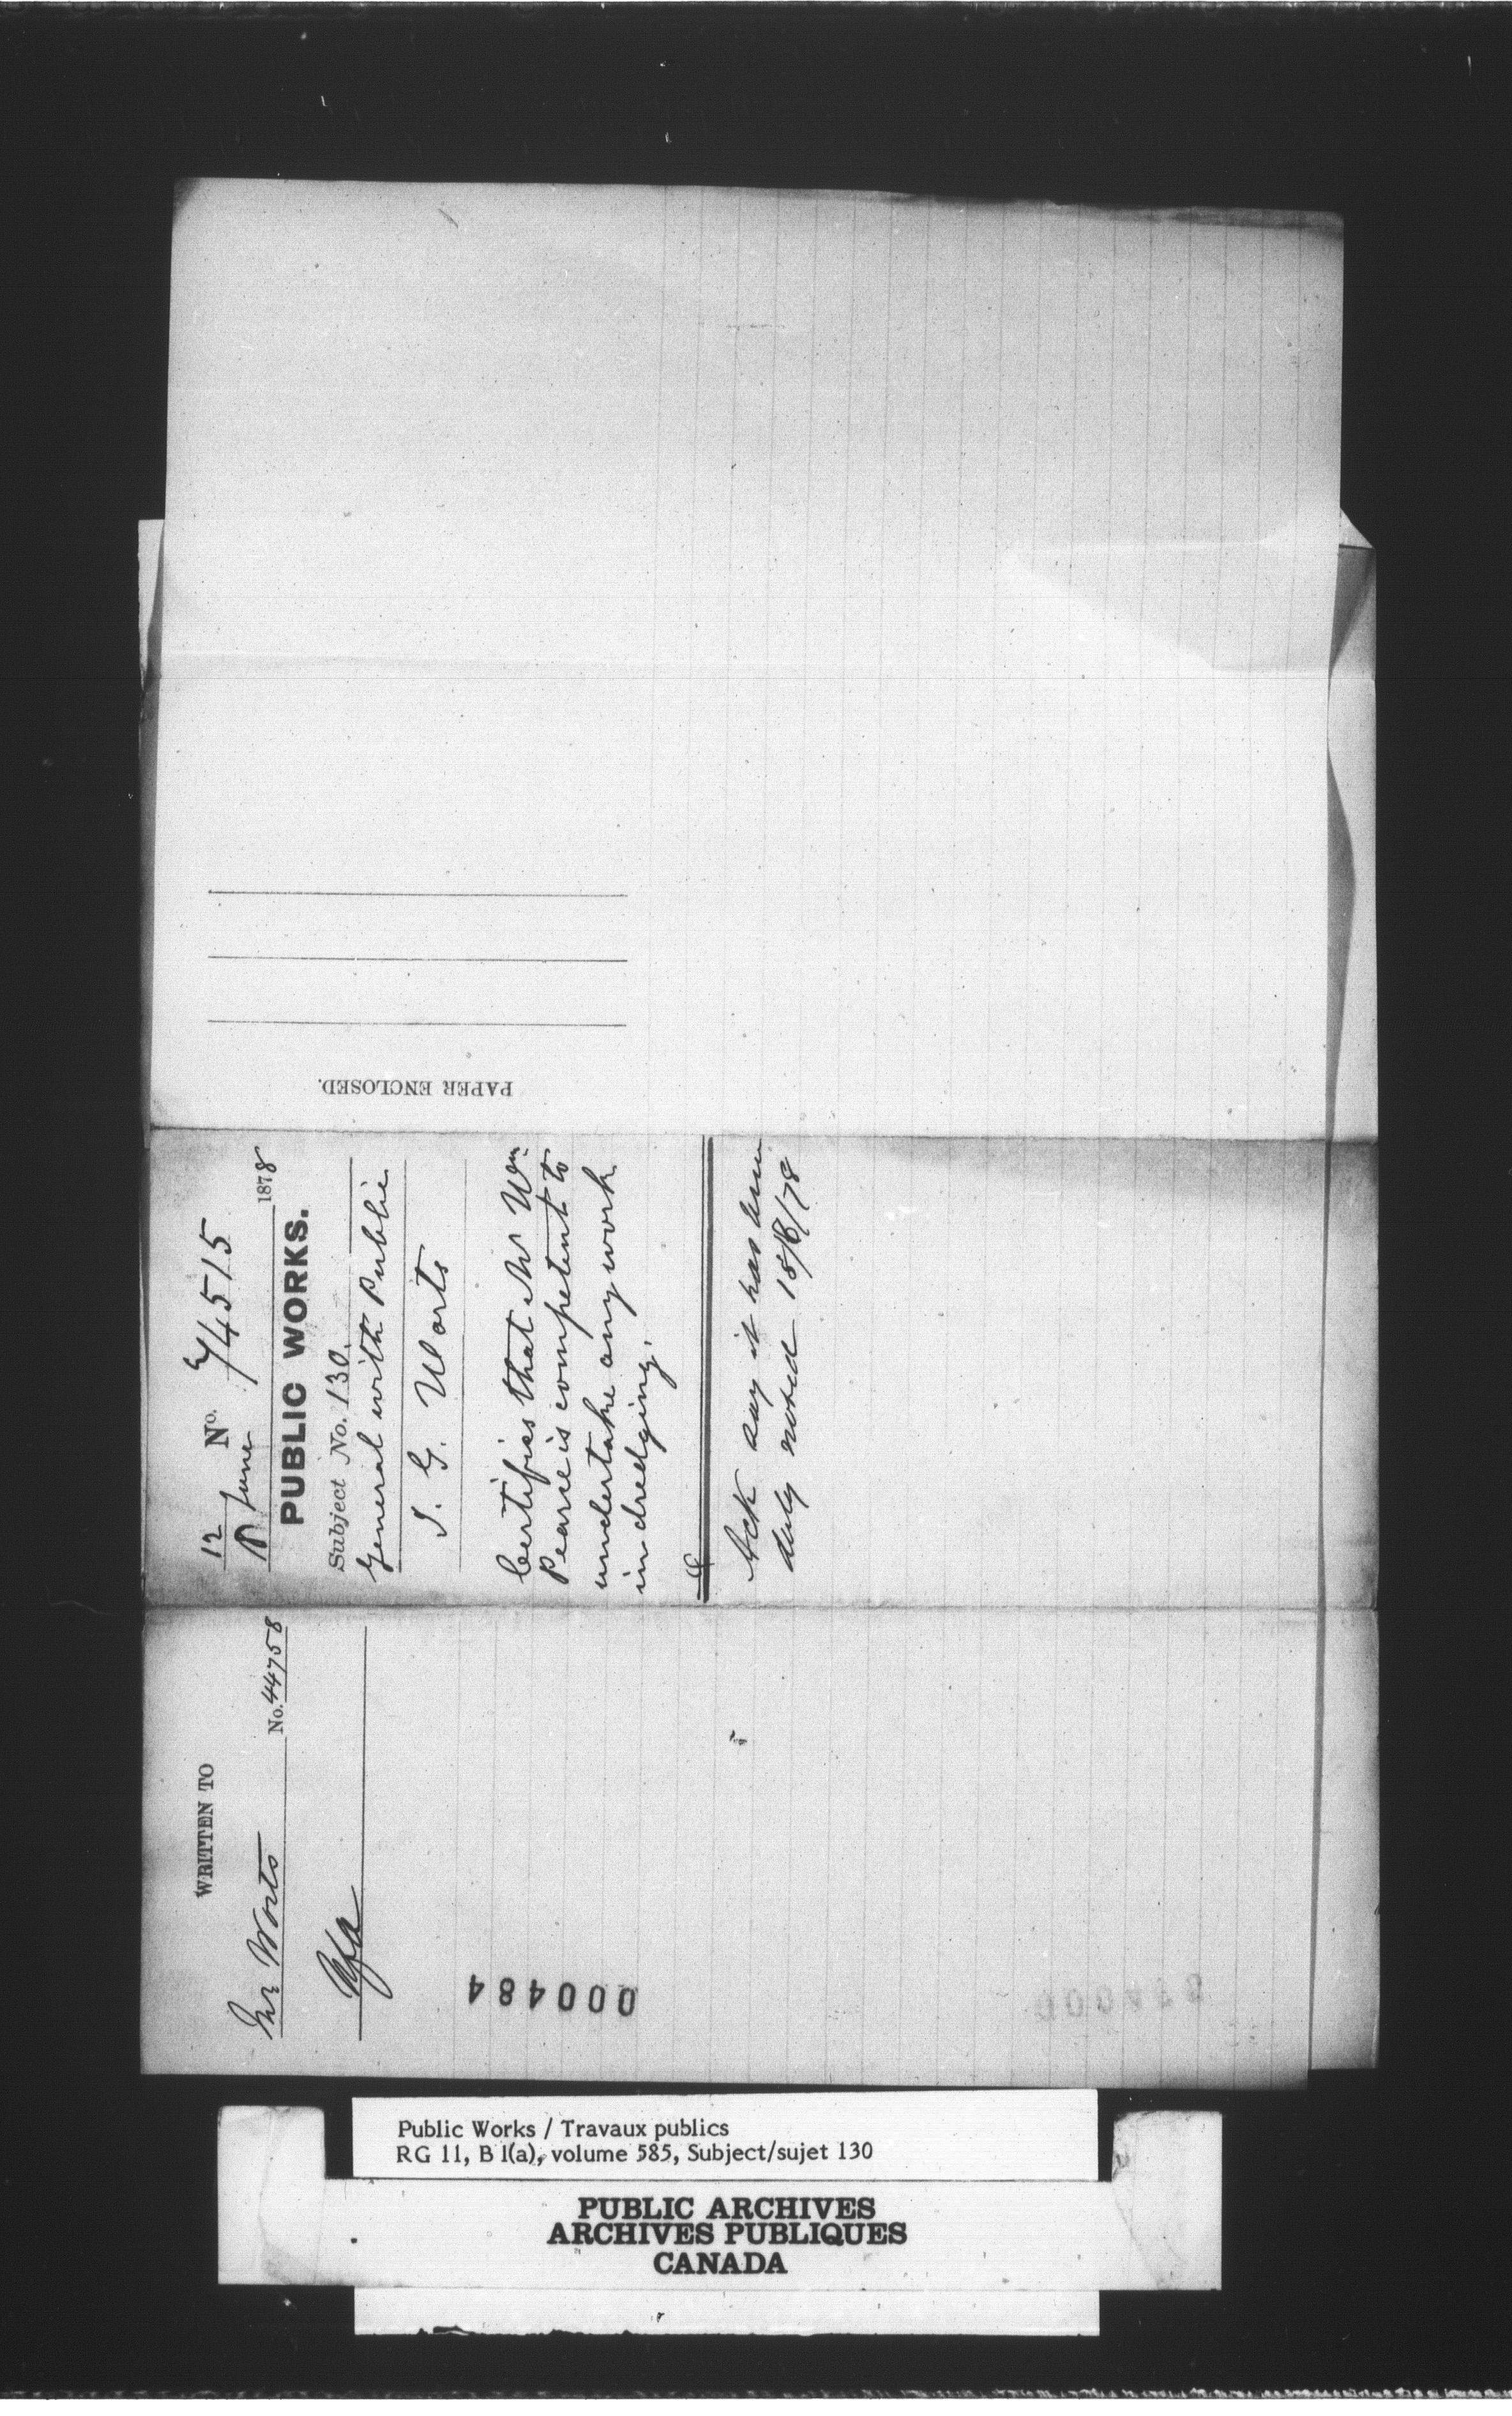 PAPER ENCLOSED.
12 No. 74515
June 1878
PUBLIC WORKS.
Subject No. 130.
General with Public
J. G. Worts
Certifies that Mr Wm
Pearse is competent to
undertake any work
in dredging.
Ack say it has been
duly noted 18/6/78
WRITTEN TO
Mr Worts No. 44758
000484
Public Works / Travaux publics
RG 11, B 1(a), volume 585, Subject/sujet 130
PUBLIC ARCHIVES
ARCHIVES PUBLIQUES
CANADA